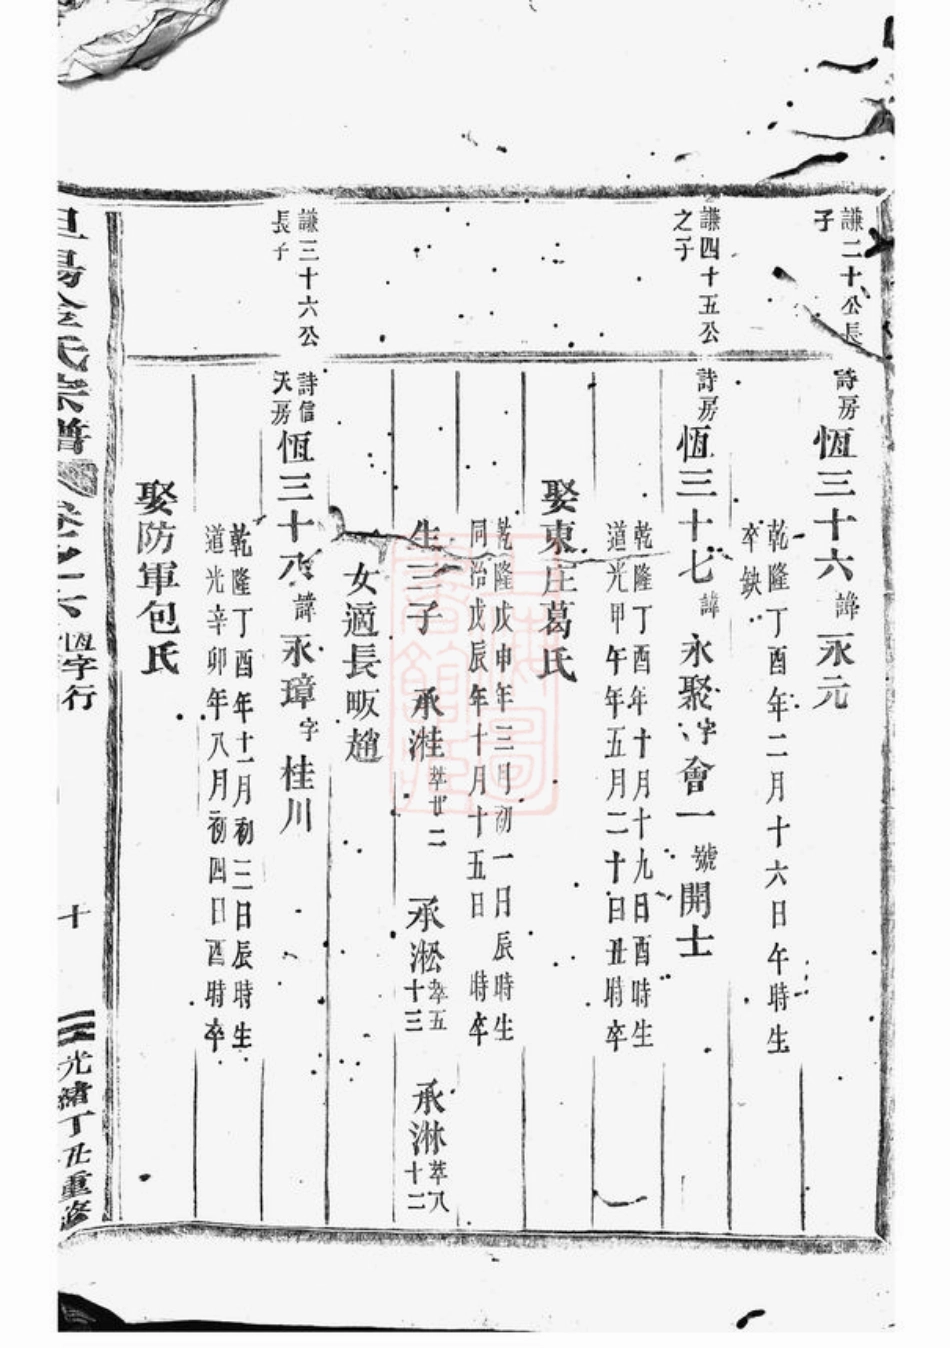 謙二十公長
子
詩房
恆三十六諱永元
乾隆丁酉年二月十六日午時生
卒缺
謙四十五公
之子
詩房
恆三十七諱永聚字會一號開士
乾隆丁酉年十月十九日酉時生
道光甲午年五月二十日丑時卒
娶東庄葛氏
乾隆戊申年三月初一日辰時生
同治戊辰年十月十五日時卒
生三子
承溎萃廿二
承淞萃五十三
承淋萃八十二
一女適長畈趙
謙三十六公
長子
詩信
天房
恆三十八諱永璋字桂川
乾隆丁酉年十一月初三日辰時生
道光辛卯年八月初四日酉時卒
娶防軍包氏
氏宗譜
卷之十六
恆字行
十
光緒丁丑重修